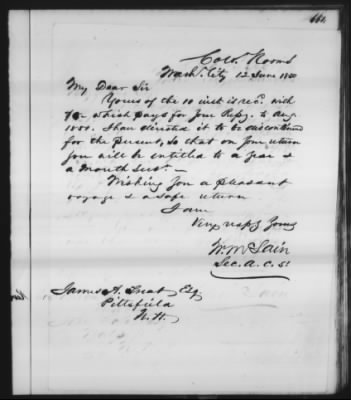 Colo. Rooms
Wash. City 12 June 1850
My Dear Sir
Yours of the 10 inst is rec. with
which pays for your Repy. to Aug
I have directed it to be discontinued
for the present, so that on your return
you will be entitled to a year &
a month
Wishing you a pleasant
voyage & a safe return
I am
Very respy Yours
W. McLain
Sec. A. C. S.
James A. Treat Esq
Pittsfield
N. H.